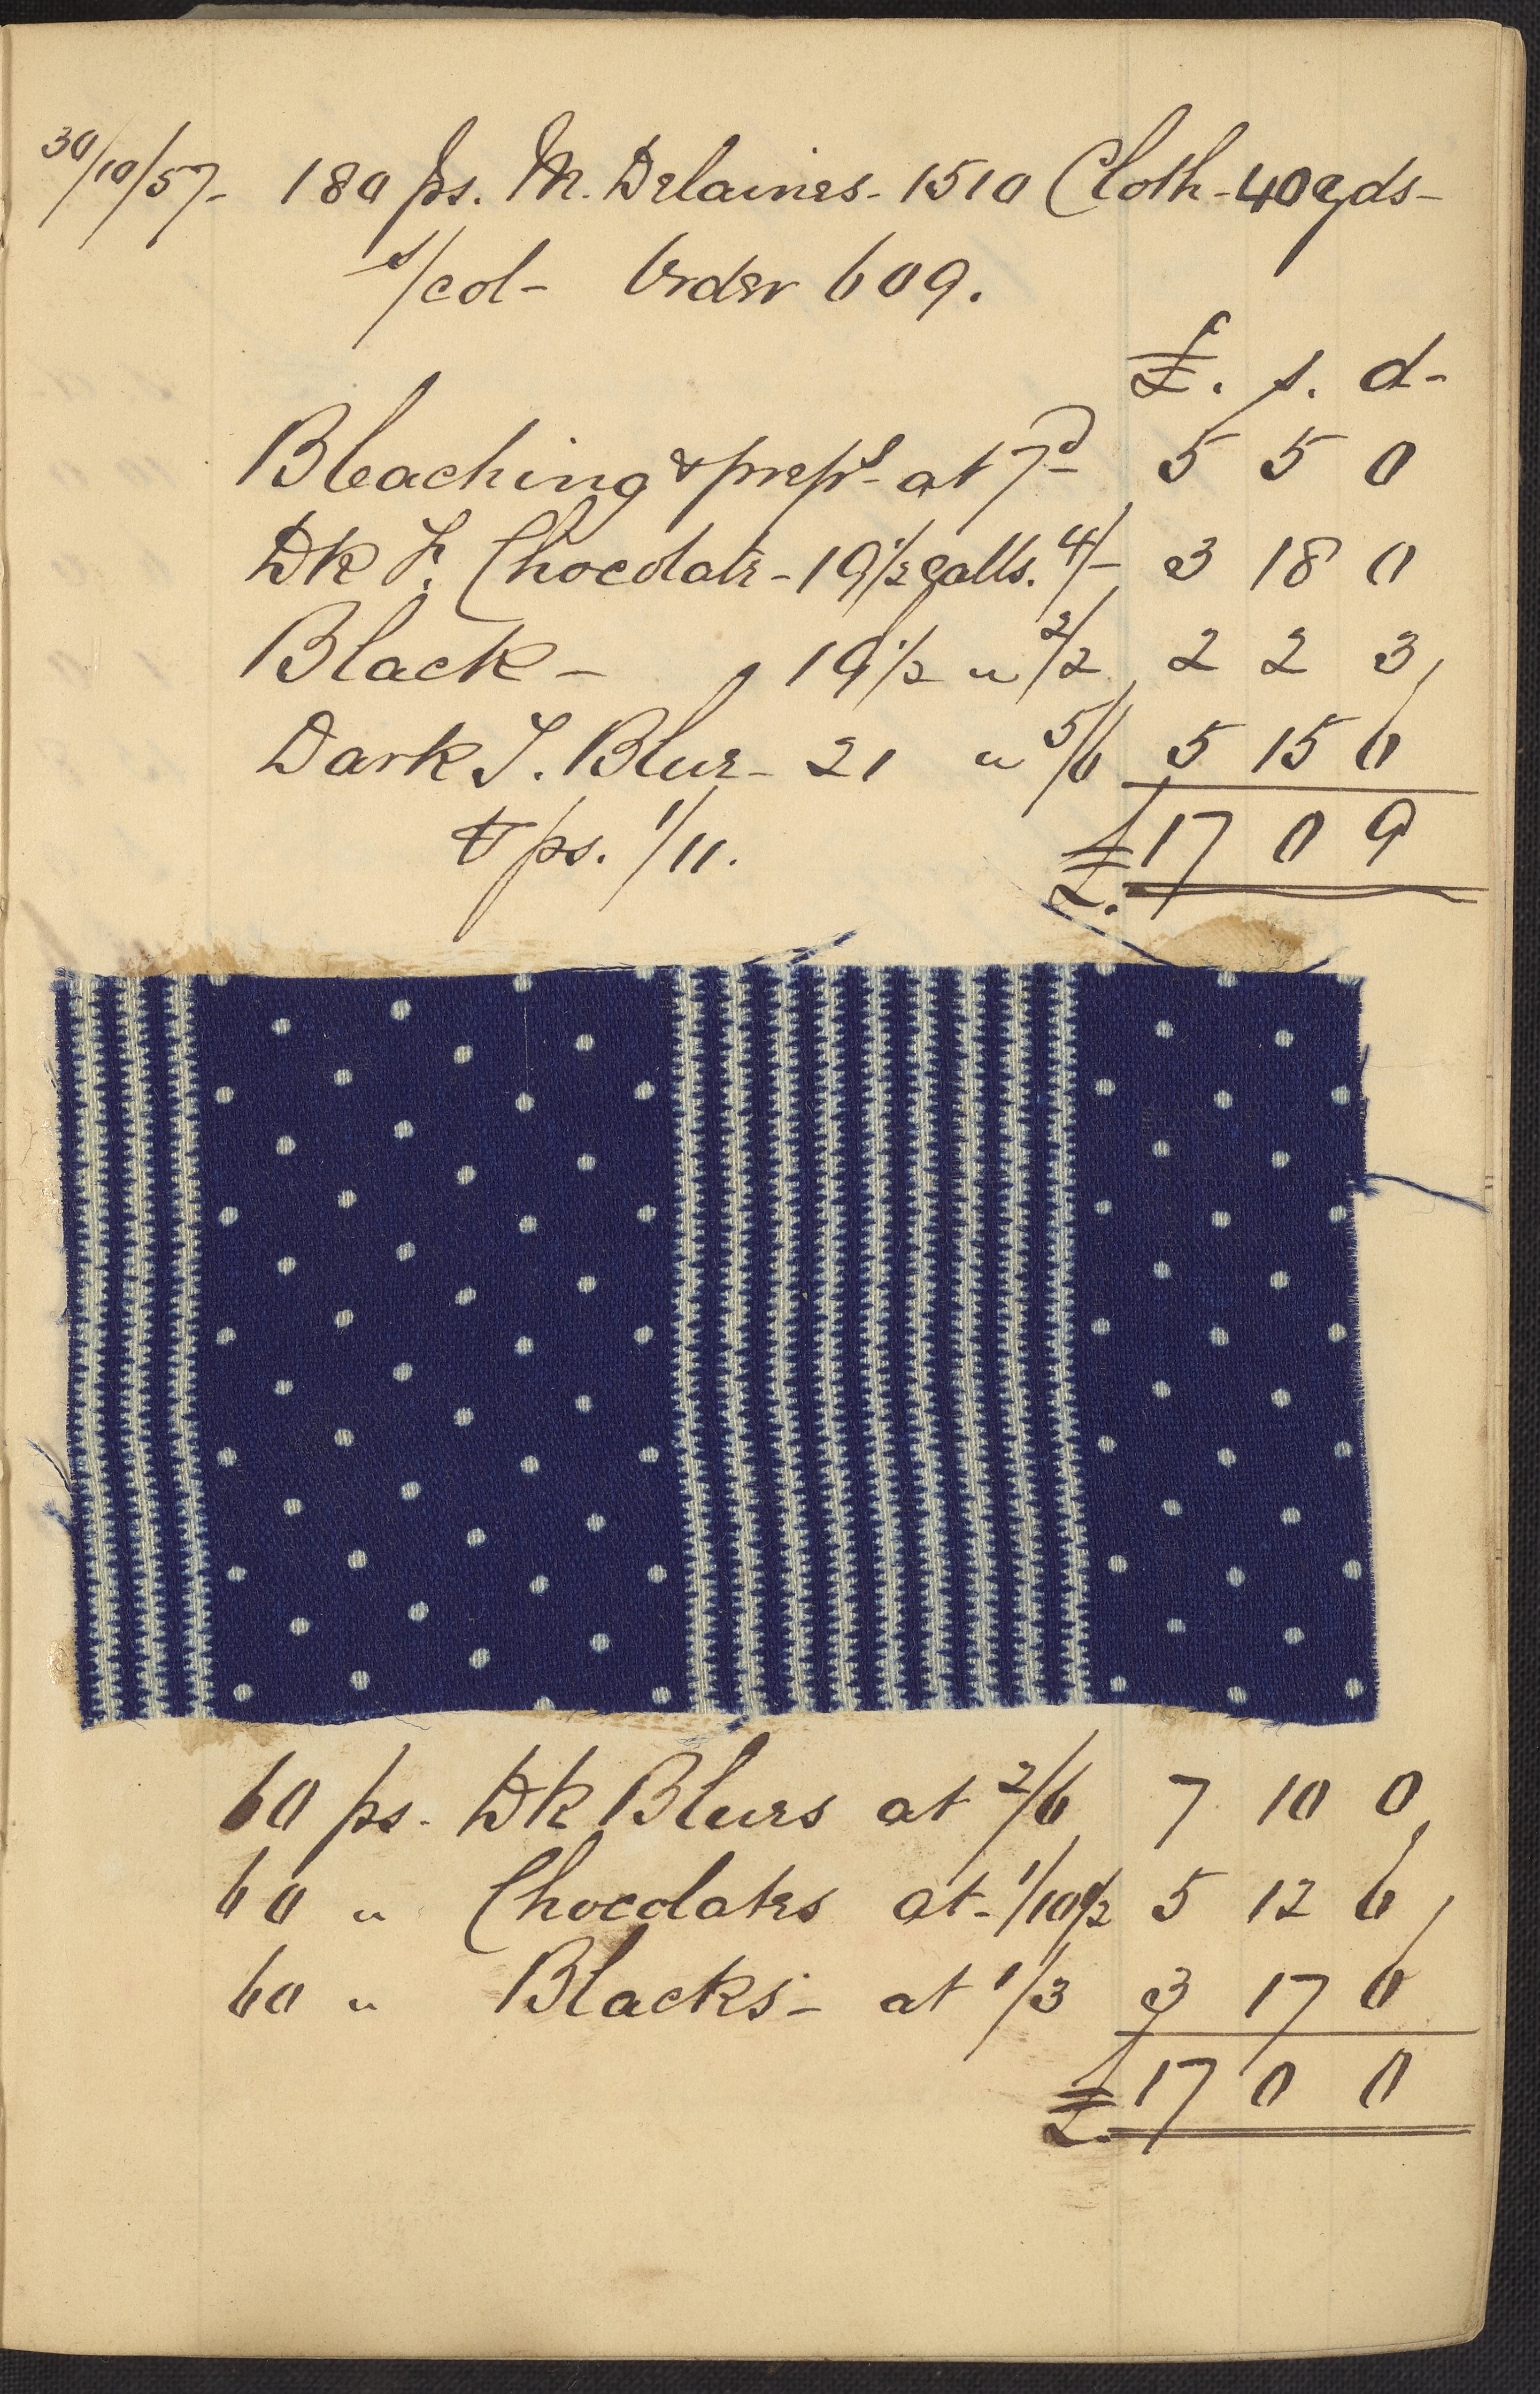 30/10/57- 180 ps. M. Delaines- 1510 Cloth - 40 yds-
s/col- Order 609.
£. s. d-
Bleaching & prepg- at 7d 5 5 0
Dk F. Chocolate - 19 1/2 galls. 4/- 3 18 0
Black - 19 1/2 " 2/2 2 2 3
Dark F. Blue - 21 " 5/6 5 15 6
ps. 1/11. £. 17 0 9
60 ps. Dk Blues at 2/6 7 10 0
60 " Chocolates at- 1/10 1/2 5 12 6
60 " Blacks - at 1/3 3 17 6
£. 17 0 0